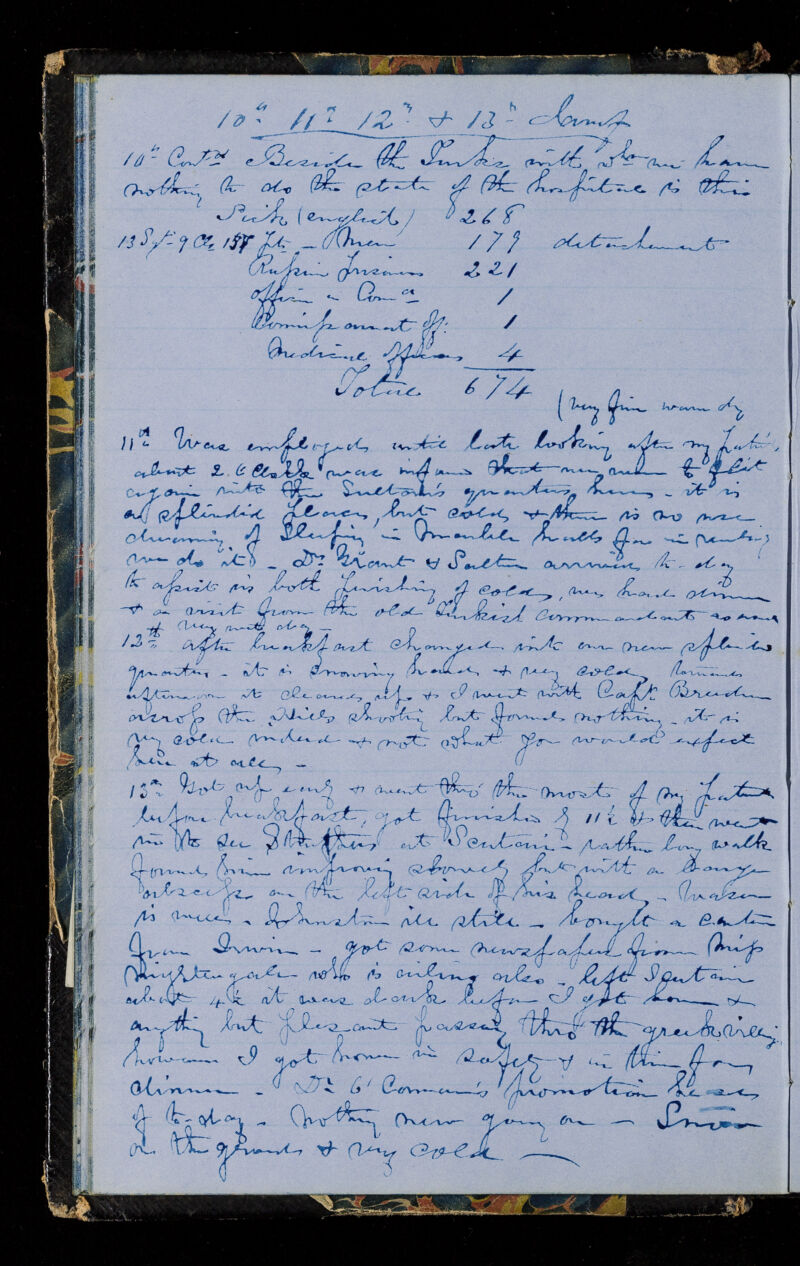 10th 11th 12th & 13th Jany
10th Contd Beside the Turks with whom we have
nothing to do the state of the hospital is this
Sick (english) 268
13 Sgts 9 Cls 157 Pts - Men 179 detachment
Russian Prisoners 221
Officer in Comd 1
Comissariat Off: 1
Medical Officers 4
Total 674
(very fine warm dy
11th Was employed until late looking after my patients,
about 2.O'Clock was informed that we were to flit
again into the Sultan's quarters here - it is
a splendid place, but cold, & there is no use
dreaming of Sleeping in Marble halls for in reality
we do it - Dr Grant & Salter arrived to-day
to assist us both perishing of cold, we had dinner
& a visit from the old Turkish commandant as usual
& very wet day
12th after breakfast changed into our new splendid
quarters - it is snowing hard & very cold, towards
afternoon it cleared up & I went with Capt
across the Hills shooting but found nothing - it is
very cold indeed & not what you would expect
here at all -
13th Got up early & went thro' the most of my patients
before breakfast, got finished by 11½ & then went
in to see Struthers at Scutari - rather long walk
found him improving slowly but with a large
abscess on the left side of his head -
is well - Johnston ill still - bought a
from Irwin - got some newspapers from Miss
Nightengale who is ailing also - left Scutari
about 4½ it was dark before I got home &
anything but pleasant passing thro' the greek village
however I got home in safety & in time for
dinner - Dr O'Connor's promotion he
of to-day - Nothing new going on - Snow
on the ground & very cold -